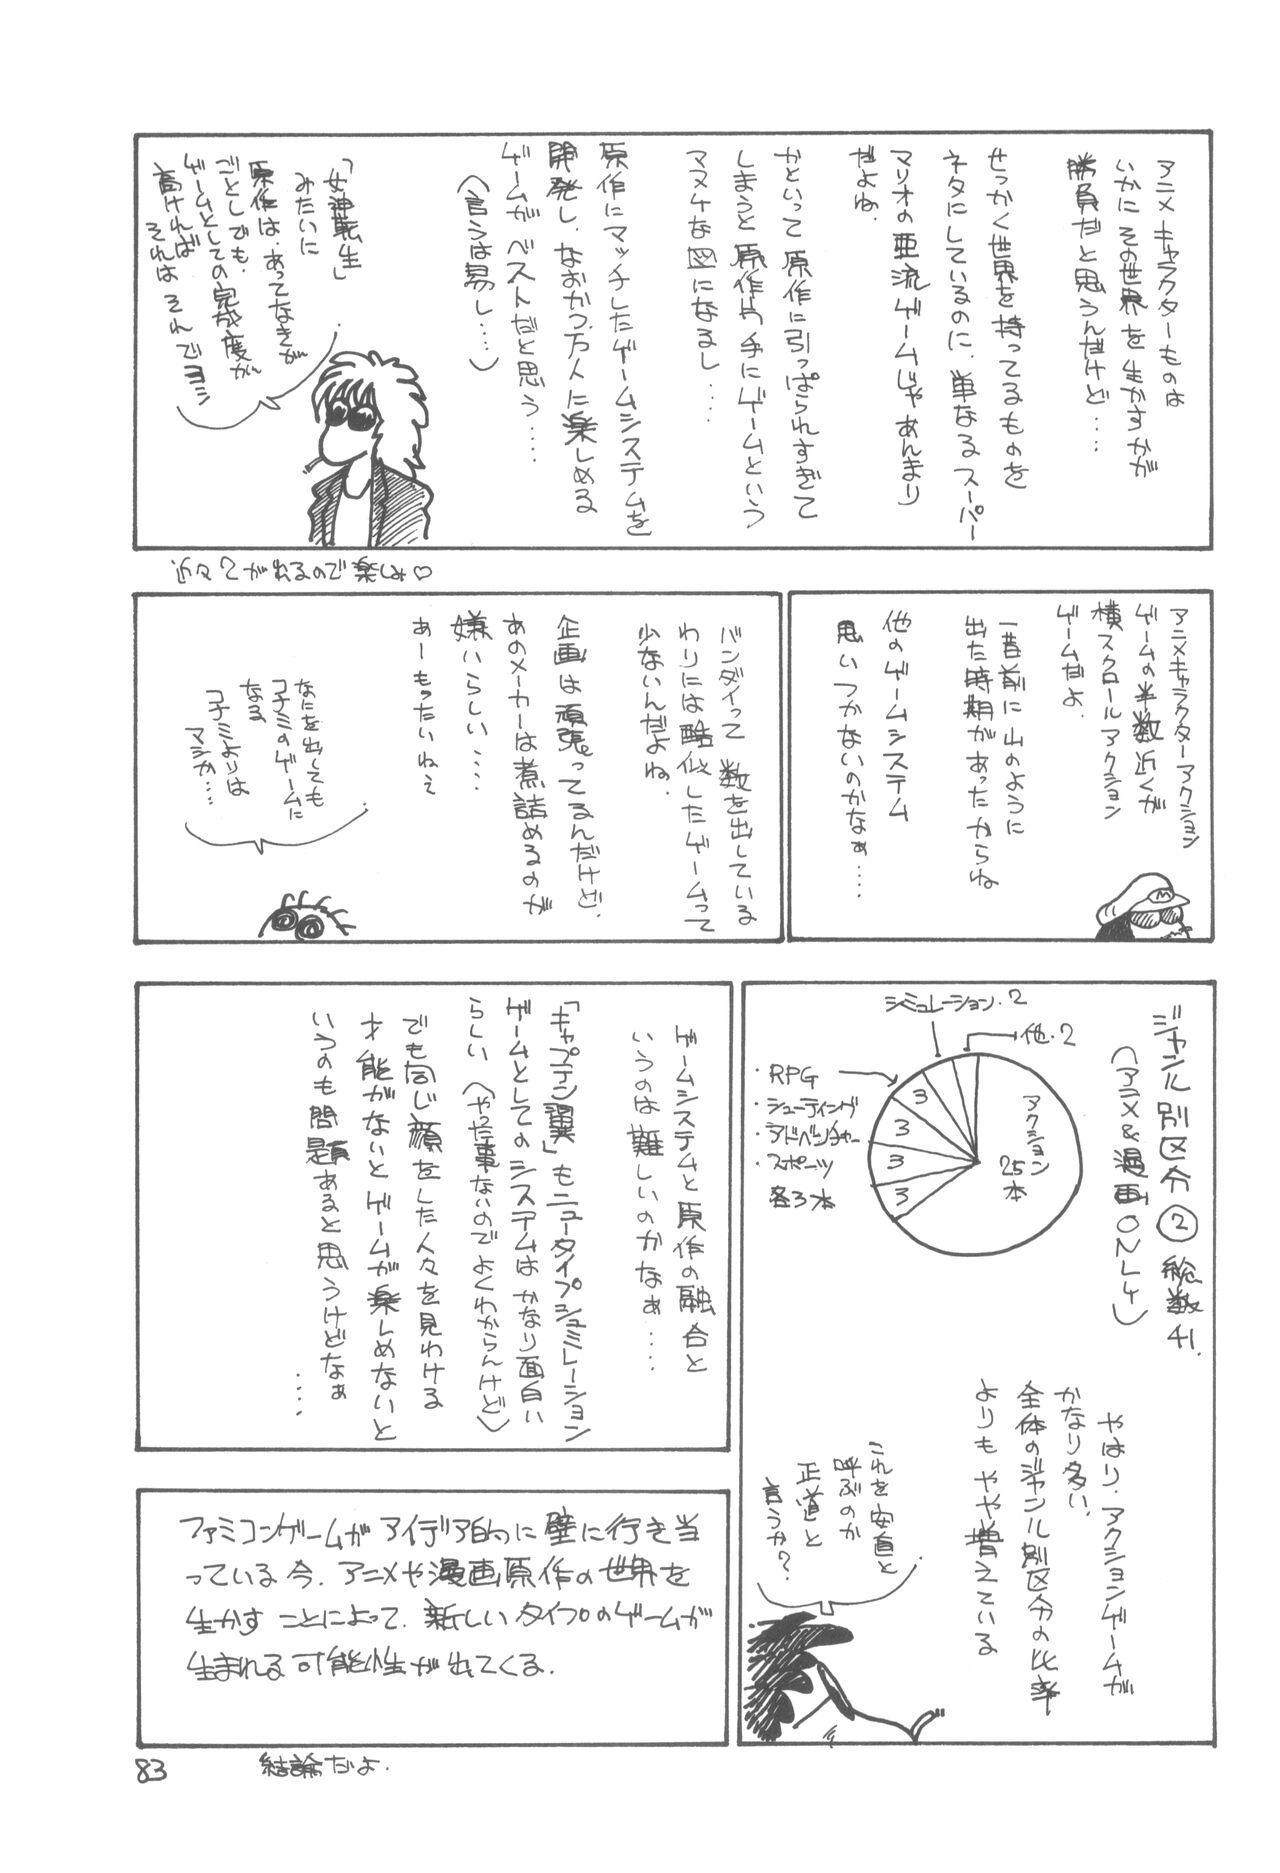 アニメキャラクターものは
いかにその世界を生かすかが
勝負だと思うんだけど‥‥
せっかく世界を持ってるものを
ネタにしているのに、単なるスーパー
マリオの亜流ゲームじゃあんまり
だよね.
かといって原作に引っぱられすぎて
しまうと原作片手にゲームという
マヌケな図になるし‥‥
原作にマッチしたゲームシステムを
開発し、なおかつ万人に楽しめる
ゲームがベストだと思う‥‥
(言うは易し‥‥)
「女神転生」
みたいに
原作は、あってなきが
ごとしでも、
ゲームとしての完成度が
高ければ
それは それでヨシ
近々2がでるので楽しみ♡
アニメキャラクターアクション
ゲームの半数近くが
横スクロールアクション
ゲームだよ.
一昔前に山のように
出た時期があったからね
他のゲームシステム
思いつかないのかなぁ‥‥
M
バンダイって数を出している
わりには酷似したゲームって
少ないんだよね.
企画は頑張ってるんだけど、
あのメーカーは煮詰めるのが
嫌いらしい‥‥
あーもったいねぇ
なにを出しても
コナミのゲームに
なる
コナミよりは
マシか‥‥
ジャンル別区分② 総数41.
(アニメ&漫画ONLY)
シミュレーション・2
他・2
・RPG
・シューティング
・アドベンチャー
・スポーツ
各3本
3
3
3
3
アクション
25本
やはり、アクションゲームが
かなり多い.
全体のジャンル別区分の比率
よりも やや増えている
これを安直と
呼ぶのか
正道と
言うか?
ゲームシステムと原作の融合と
いうのは難しいのかなぁ‥‥
「キャプテン翼」もニュータイプシュミレーション
ゲームとしてのシステムはかなり面白い
らしい(やった事ないのでよくわからんけど)
でも同じ顔をした人々を見わける
才能がないとゲームが楽しめないと
いうのも問題あると思うけどなぁ
‥‥
ファミコンゲームがアイデア的に壁に行き当
っている今、アニメや漫画原作の世界を
生かすことによって、新しいタイプのゲームが
生まれる可能性が出てくる.
結論だよ.
83